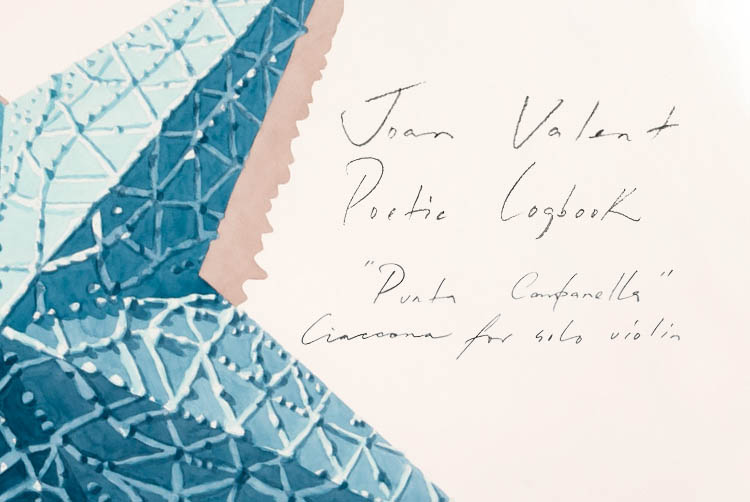 Joan Valent
Poetic Logbook
"Punta Campanella"
Ciaccona for solo violin